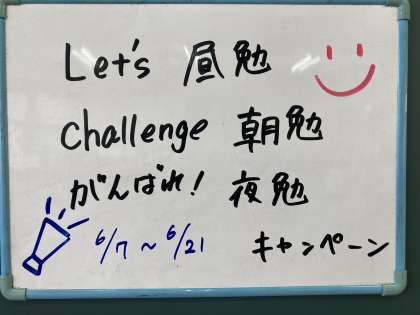 Let's 昼勉
Challenge 朝勉
がんばれ! 夜勉
6/7 ~ 6/21 キャンペーン